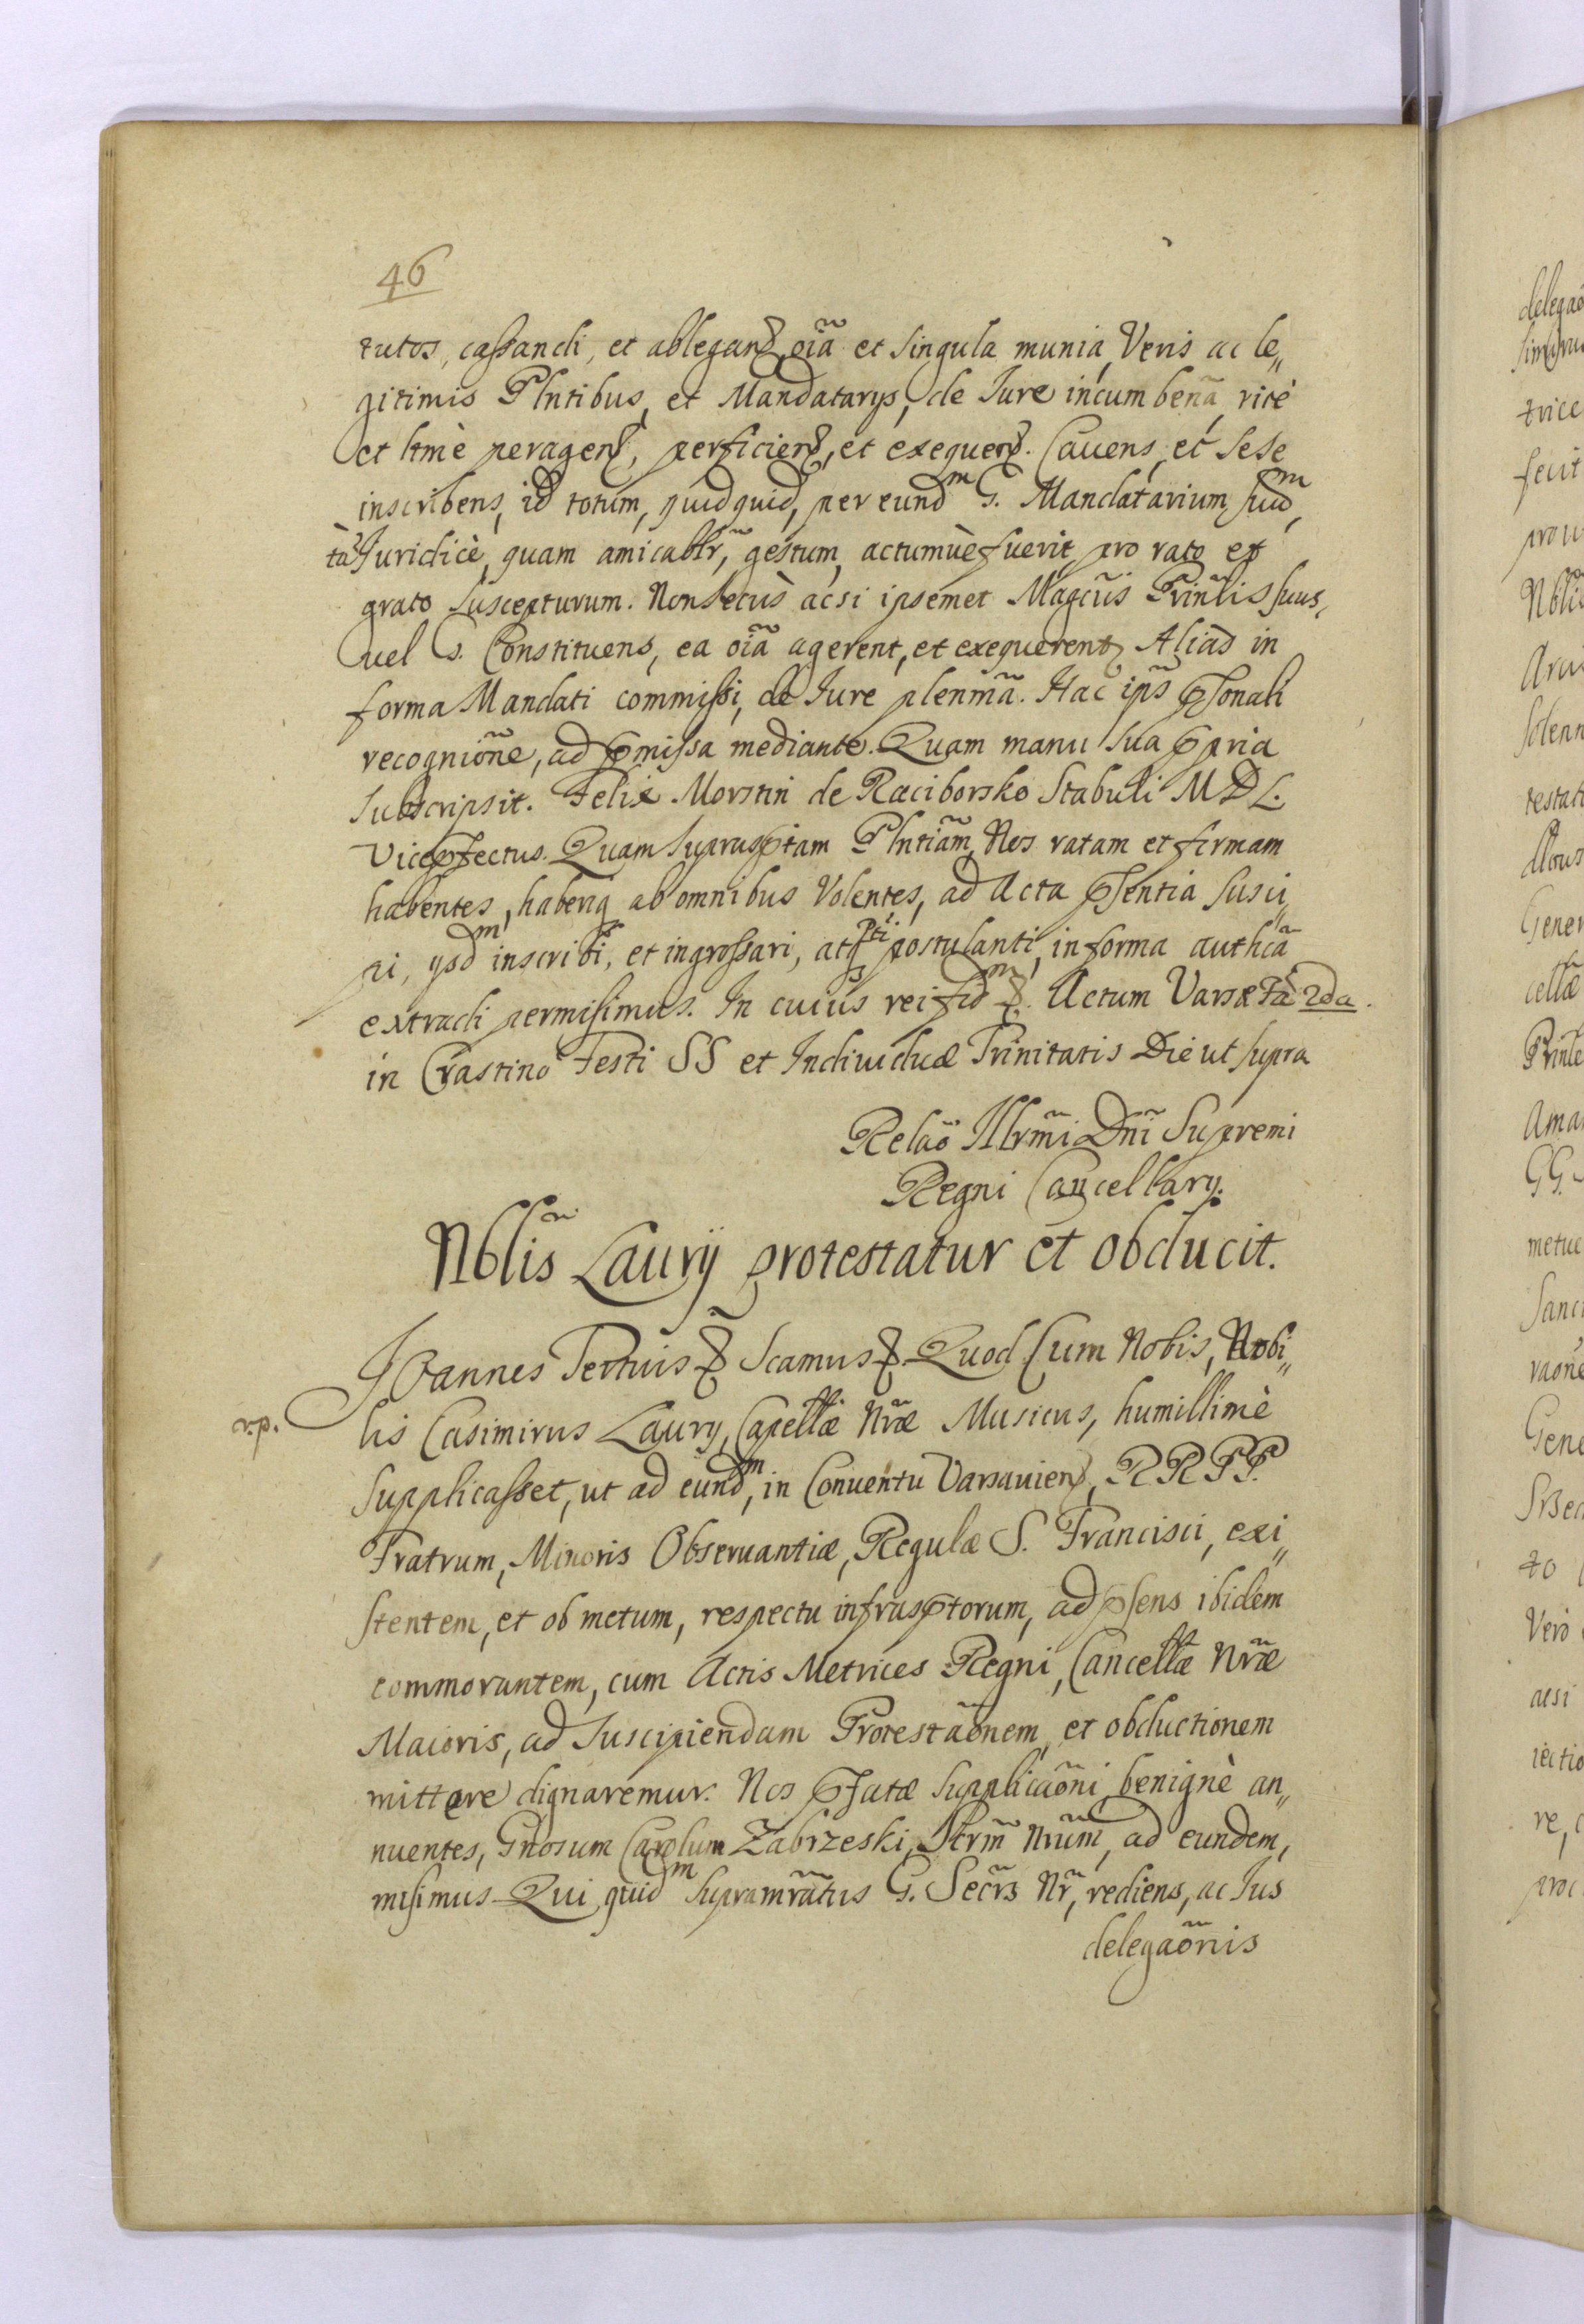 46
tutos, cassandi, et ablegand, oĩa et singula munia, Veris ac le„
gitimis Plntibus, et Mandatarys, de Iure incumbeña, ritè
et ltmè peragend, perficiend, et exequend. Cavens, et sese
inscribens, id totum, quidquid, per eundm G. Mandatarium, suum,
tã Juridicè, quam amicabtr, gestum, actumuè fuerit, pro rato et
grato suscepturum. Non secùs acsi ipsemet Magcus Prinlis suus,
vel G. Constituens, ea oĩa agerent, et exequerent, Alias in
forma Mandati commissi, de Iure plenmã. Hac ips psonali
recognione, ad pmissa mediante. Quam manu sua ppria
subscripsit. Felix Morstin de Raciborsko Stabuli M D L.
Vicepfectus. Quam suprascptam Plntiam, Nos ratam et firmam
habentes, haberiq ab omnibus Volentes, ad Acta psentia susci„
pi, ysdm inscribi, et ingrossari, atq pti postulanti, in forma authcã
extradi permisimus. In cuius rei fidm &. Actum Varsæ Fã 2da.
in Crastino Festi SS et Individuæ Trinitatis Die ut supra
Relaõ Illrmi Dñi Supremi
Regni Cancellary.
Nblis Laurij protestatur et obducit.
Joannes Tertius & Scamus &. Quod Cum Nobis, Nobi„
r.p. lis Casimirus Laury, Capellæ Nræ Musicus, humillimè
supplicasset, ut ad eundm, in Conventu Varsavien, RR PP.
Fratrum, Minoris Observantiæ, Regulæ S. Francisci, exi„
stentem, et ob metum, respectu infrascptorum, ad psens ibidem
commorantem, cum Actis Metrices Regni, Cancellæ Nræ
Maioris, ad suscipiendam Protestaõnem, et obductionem
mittere dignaremur. Nos pfatæ supplicaõni, benignè an„
nuentes, Gnosum Carolum Zabrzeski, Scrm Nrum, ad eundem,
misimus. Qui quidm supramratus G. Secrs Nr, rediens, ac Ius
delegaõnis